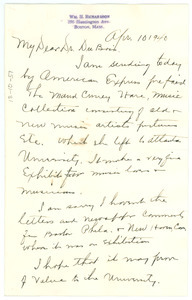 WM. H. RICHARDSON
Boston, Mass.
Apr 10 1940
My Dear Dr Du Bois
I am sending today
by American Express prepaid
The Maud Cuney Hare, Music
Collection consisting of old &
new music artists pictures
Etc. Which she left to Atlanta
University. It make a very fine
Exhibit for music lovers &
musicians.
I am sorry I haven't the
letters and newspaper comment
from Boston Phila. & New Haven Conn
when it was on Exhibition
I hope that it may prove
of value to the University.